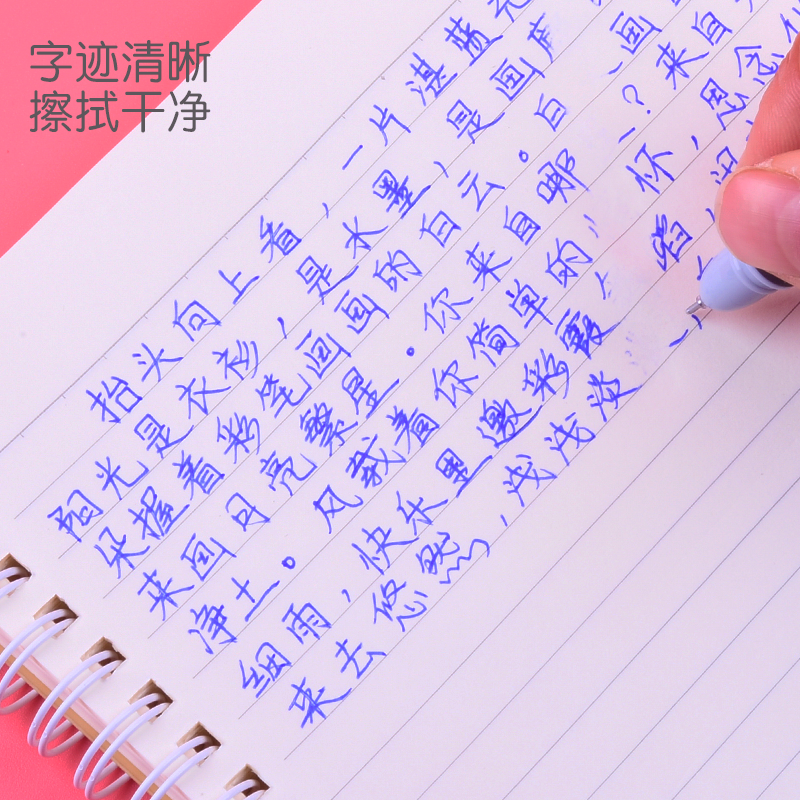 字迹清晰
擦拭干净
抬头向上看，一片湛蓝
阳光是衣衫，是水墨，是画
朵握着彩笔画画的白云。白一画
来画月亮繁星。你来自哪一？来自
净土。风载着你简单的怀，思念
细雨，快乐里邀彩霞，
来去悠然，浅浅淡